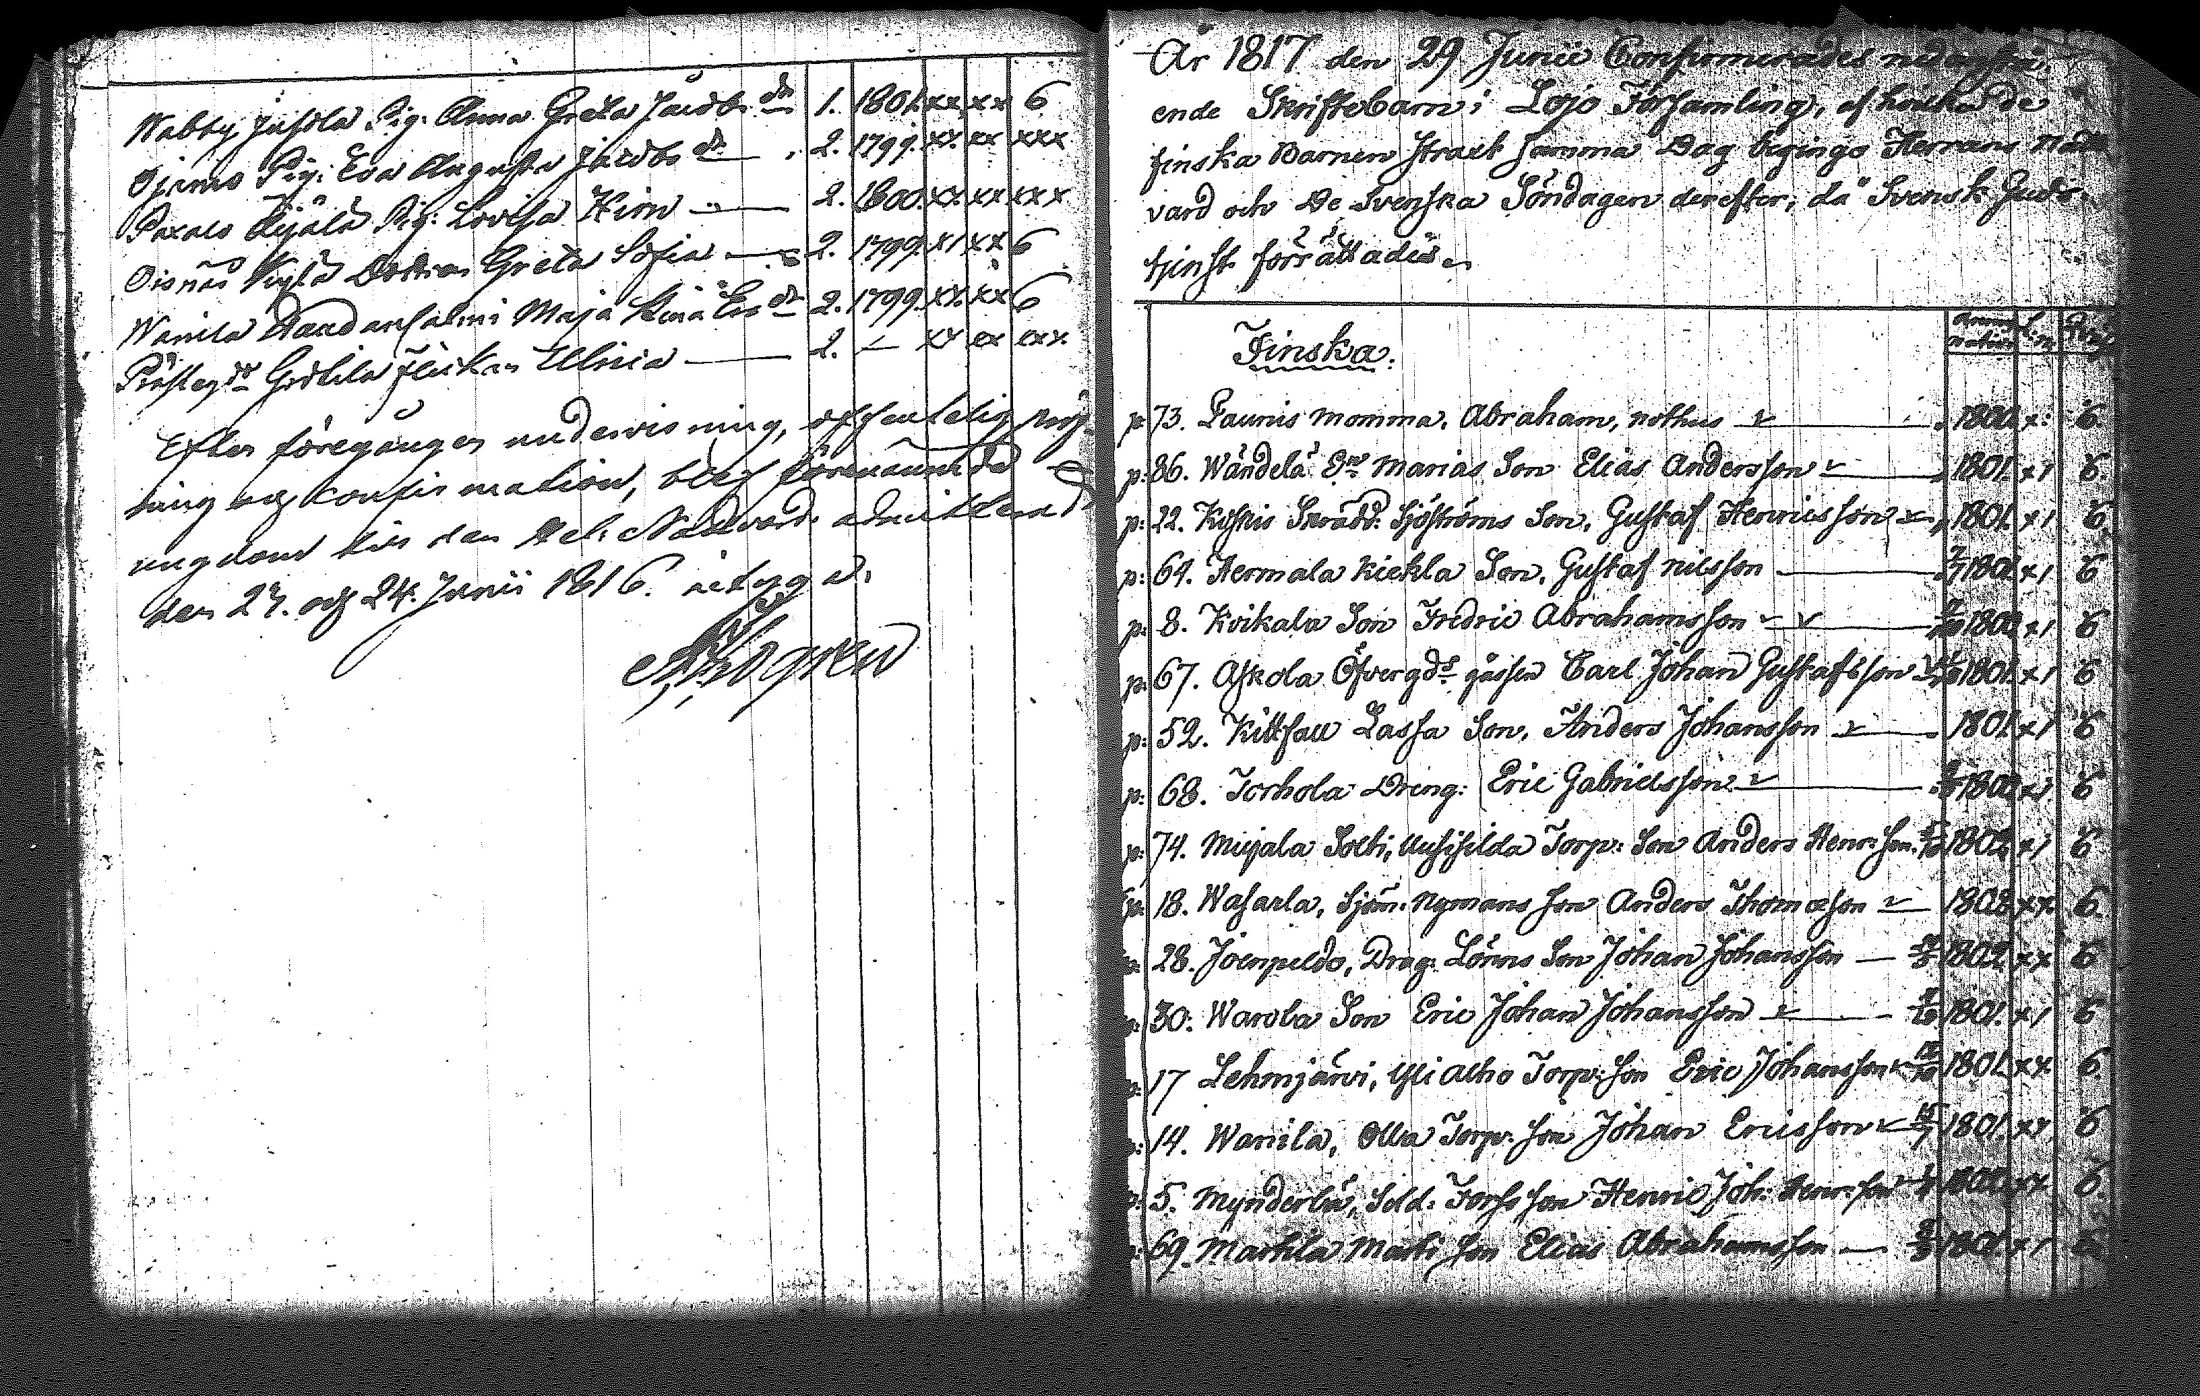 Nabby Jusola Pig. Anna Greta Jacobs dr 1. 1801. xx xx 6
Ojamo Pig. Eva Augusta Jacobs dr 2. 1799. xx xx xxx
Paxalo Kyälä Pig. Lovisa Kinn 2. 1800. xx xx xxx
Oisnäs Greta Sofia 2. 1799. x1 xx 6
Wanila Maja Stina Ers dr 2. 1799. xx xx 6
Prästegdn Flickan Ulrica 2. — xx xx xxx
Efter föregången undervisning, offentelig pröf-
ning och confirmation, blef förenämnde
ungdom til den Hel. Nattvard admitterad
den 23. och 24. Junii 1816. intygar.
År 1817 den 29 Junii Confirmerades nedanstå-
ende Skriftebarn i Lojo Församling, af hvilka de
finska Barnen straxt samma Dag begingo Herrans Natt-
vard och De Svenska Söndagen derefter, då Svensk Guds-
tjenst förrättades.
Finska.
p: 73. Paunis Momma, Abraham, nothus 1800. x: 6.
p: 86. Wändelä Enk. Marias Son Elias Andersson 1801. x1 6.
p: 22. Kiskis Skrädd: Sjöströms Son, Gustaf Henricsson 1801. x1 6
p: 64. Hermala Kiekla Son, Gustaf Nilsson 1801. x1 6
p: 8. Koikala Son Fredric Abrahamsson 1800 x1 6
p: 67. Askola Öfvergds gåssen Carl Johan Gustafsson 1801. x1 6
p: 52. Kittfall Lassa Son, Anders Johansson 1801. x1 6
p: 68. Torhola Dreng: Eric Gabrielsson 1800 x1 6
p: 74. Mujala Solti, Uusisilda Torp: Son Anders Henr:son 1802 x1 6
p: 18. Wasarla, Sjöm. Nymans Son Anders Thomasson 1803 xx 6.
p: 28. Joenpeldo, Drag: Lönns Son Johan Johansson 1802 xx 6
p: 30. Warola Son Eric Johan Johansson 1801. x1 6
p: 17 Lehmjärvi, Yli Acho Torp: Son Eric Johansson 1801. xx 6.
p: 14. Wanila, Olla Torp: Son Johan Ericsson 1801. xx 6
p: 5. Mynderlä, Sold: Forss Son Henric Joh: Henr:son xx 6.
p: 69. Martila Matti Son Elias Abrahamsson 1801. x1 6